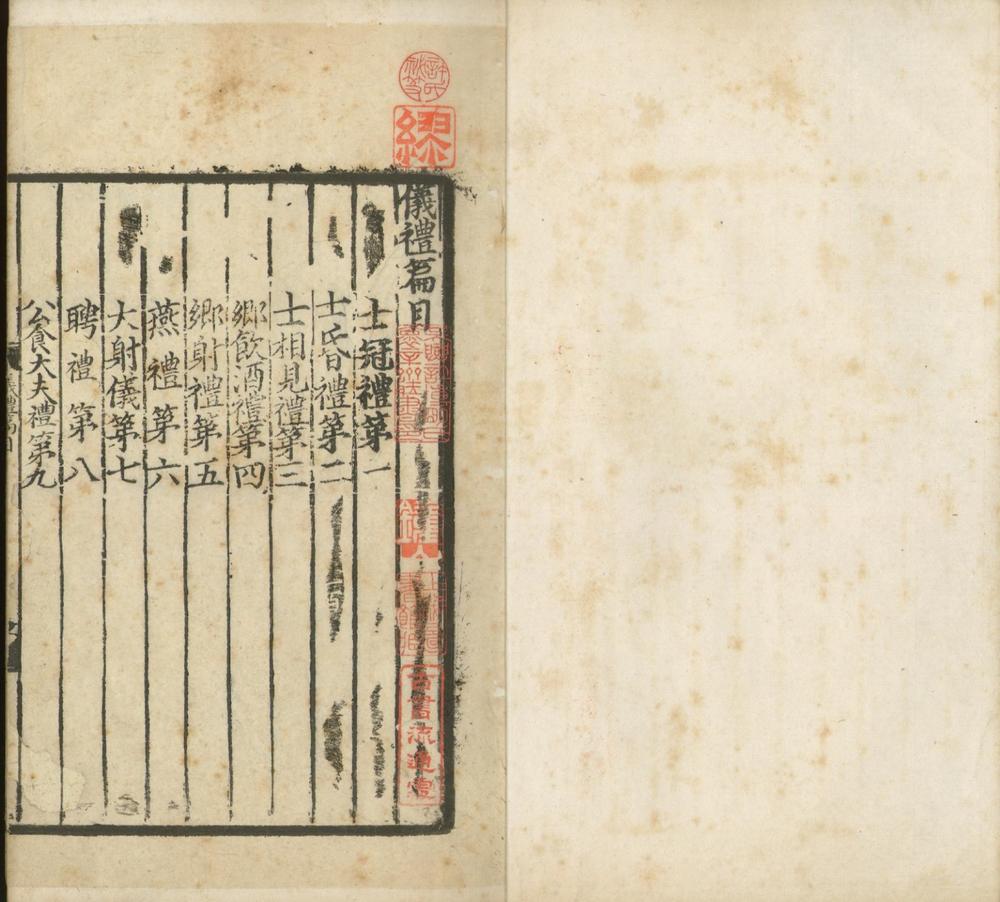 儀禮篇目
士冠禮第一
士昏禮第二
士相見禮第三
鄉飲酒禮第四
鄉射禮第五
燕禮第六
大射儀第七
聘禮第八
公食大夫禮第九
古書流通處